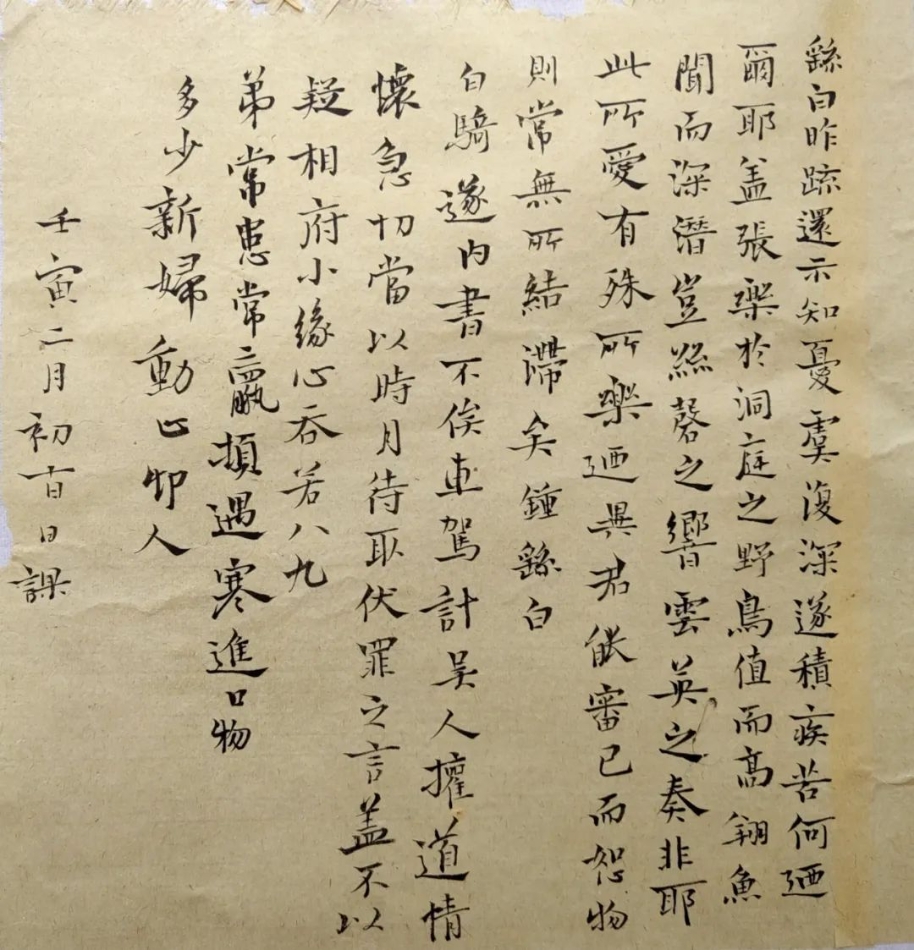 繇白昨疏還示知憂虞復深遂積疾苦何迺
爾耶盖張樂於洞庭之野鳥值而高翔魚
聞而深潛豈絲磬之響雲英之奏非耶
此所愛有殊所樂迺異君能審己而恕物
則常無所結滯矣鍾繇白
白騎遂内書不俟車駕計吴人擁道情
懷急切當以時月待取伏罪之言盖不以
疑相府小緣心吞若八九
弟常患常羸頓遇寒進口物
多少新婦動止仰人
壬寅二月初百日課